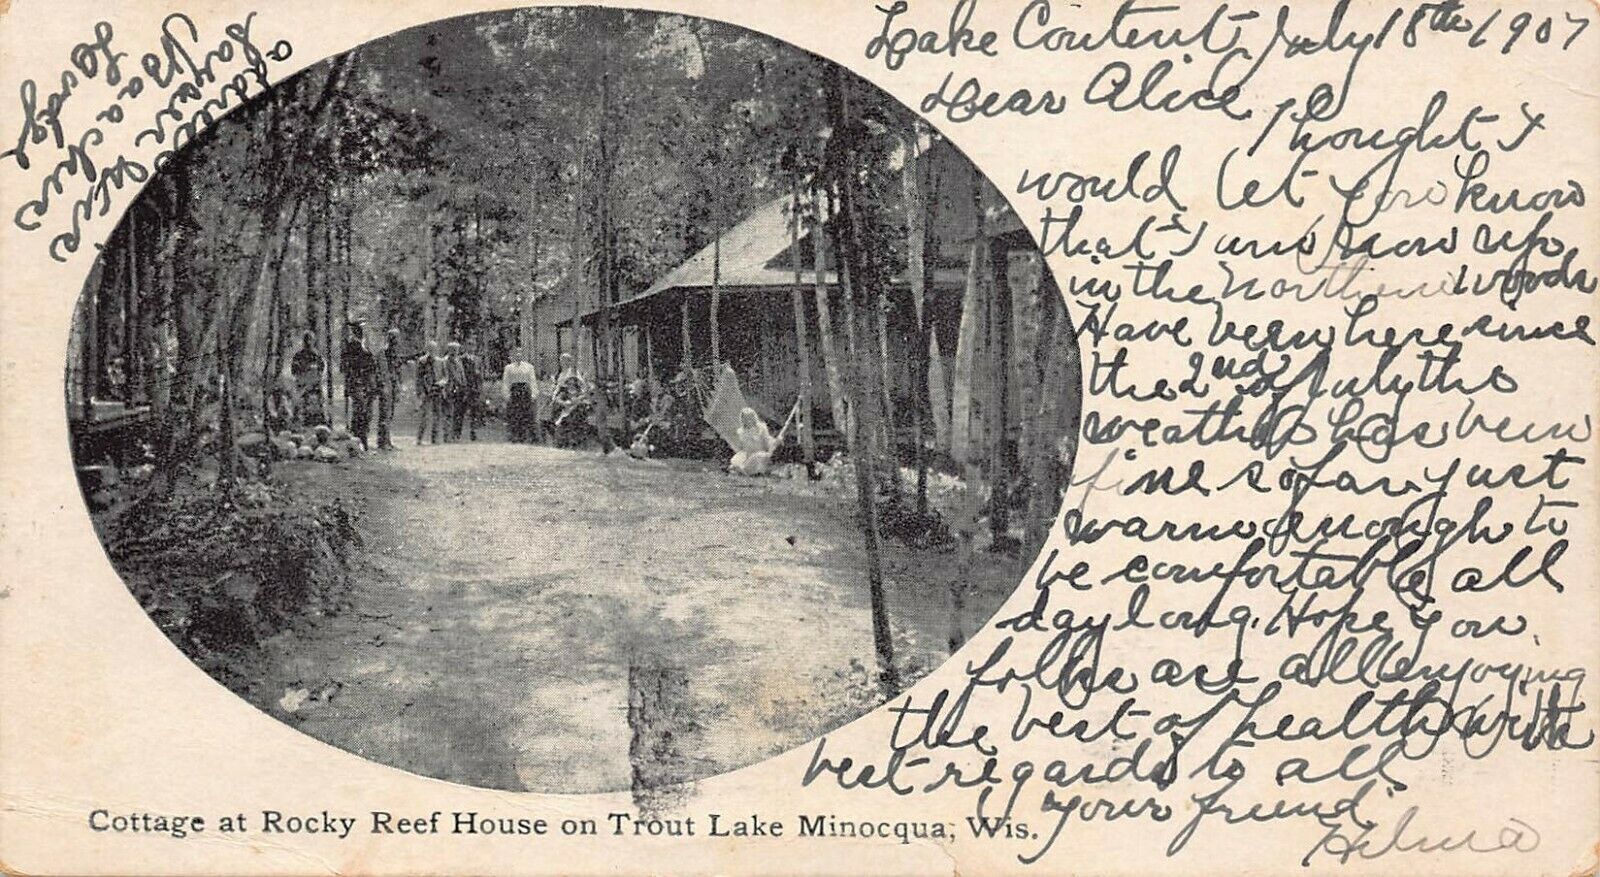 Lake Content, July 18th 1907
Dear Alice
Thought I
would let you know
that I am now up
in the Northern woods
Have been here since
the 2nd of July the
weather has been
fine so far, just
warm enough to
be comfortable all
day long. Hope you
folks are all enjoying
the best of health with
best regards to all
your friend
Hilma
Cottage at Rocky Reef House on Trout Lake Minocqua, Wis.